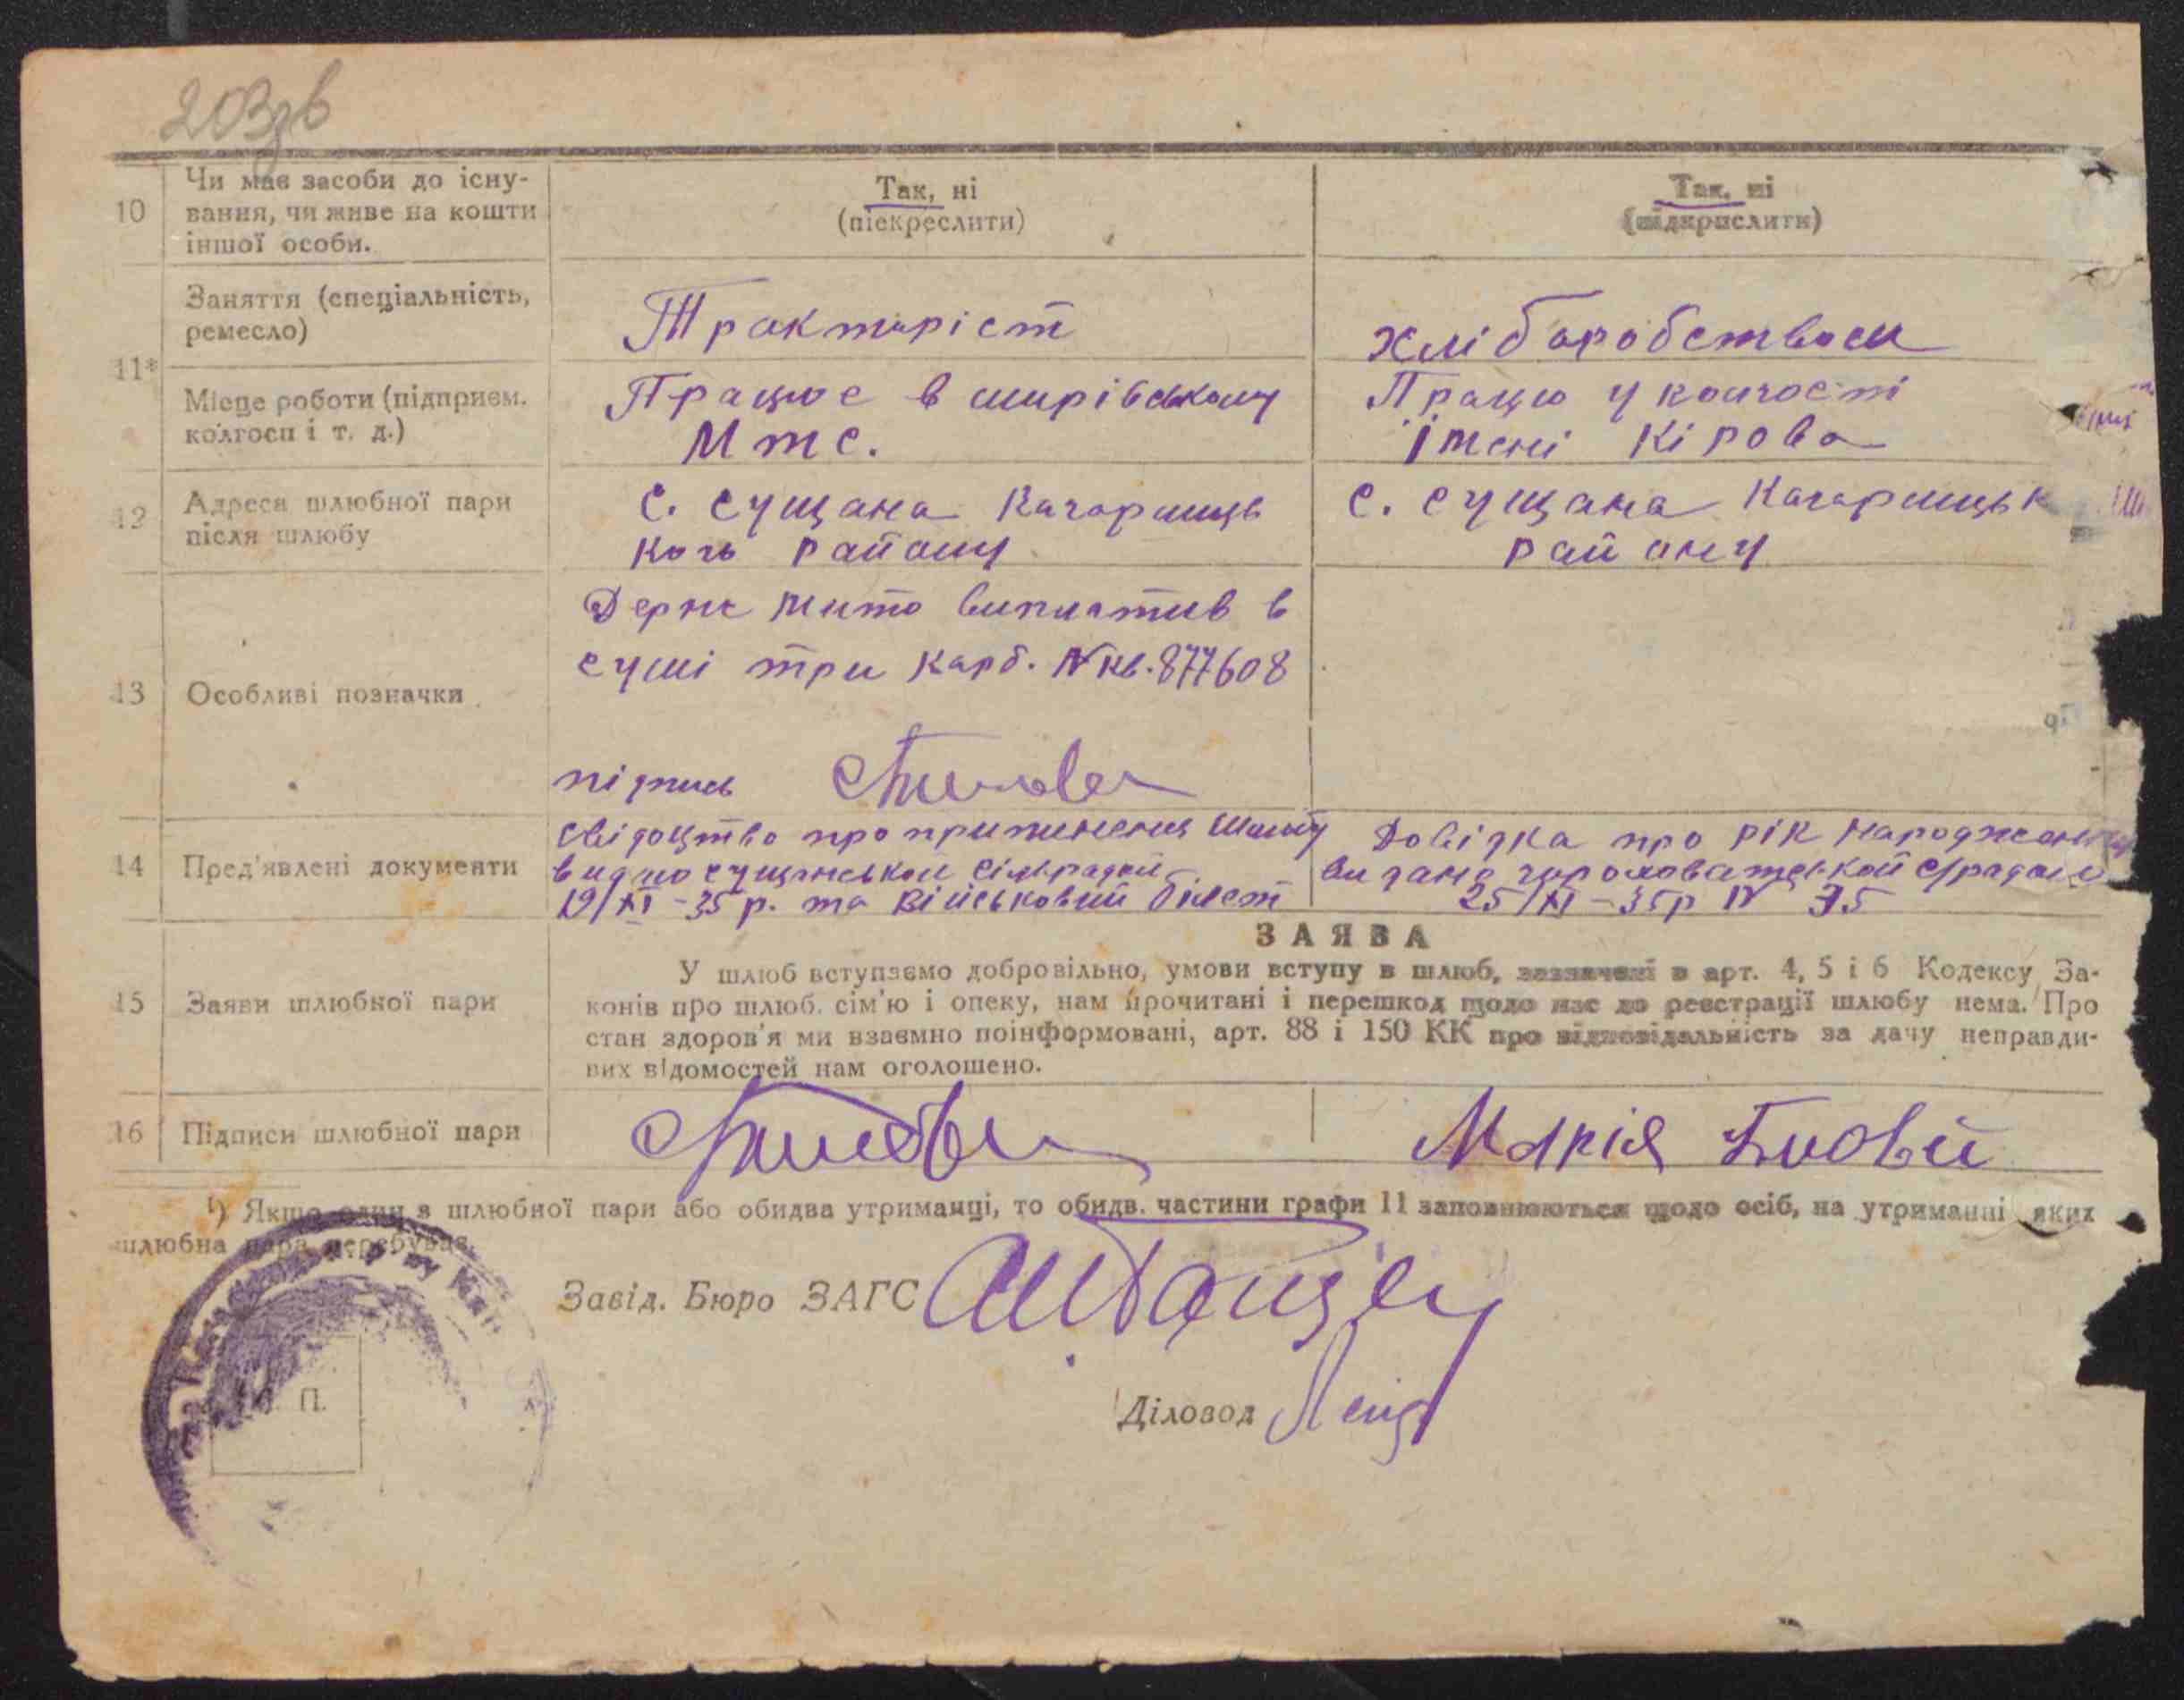 203зв
10 Чи має засоби до існу-
вання, чи живе на кошти
іншої особи.
Так, ні
(піекреслити)
Так, ні
(підкрислити)
11*
Заняття (спеціальність,
ремесло)
Тракторіст
хліборобством
Місце роботи (підприєм.
колгосп і т. д.)
Працює в ширівському
мтс.
Працю у колгоспі
імені Кірова
12 Адреса шлюбної пари
після шлюбу
с. сущана Кагарлицъ
кого району
с. сущана Кагарлицьк
району
13 Особливі позначки
Держ мито виплатив в
сумі три карб. № кв. 877608
підпись
14 Пред'явлені документи
свідоцтво про припинення шлюбу
видано сущанськой сільрадой
19/XI-35 р. та військовий білет
Довідка про рік народжен
видана гороховатськой с/радою
25/XI-35р № 35
15 Заяви шлюбної пари
ЗАЯВА
У шлюб вступаємо добровільно, умови вступу в шлюб, зазначені в арт. 4, 5 і 6 Кодексу За-
конів про шлюб. сім'ю і опеку, нам прочитані і перешкод щодо нас до реєстрації шлюбу нема. Про
стан здоров'я ми взаємно поінформовані, арт. 88 і 150 КК про відповідальність за дачу неправди-
вих відомостей нам оголошено.
16 Підписи шлюбної пари
Марія
¹) Якщо один з шлюбної пари або обидва утриманці, то обидв. частини графи 11 заповнюються щодо осіб, на утриманні яких
шлюбна пара перебуває.
Завід. Бюро ЗАГС
Діловод
П.